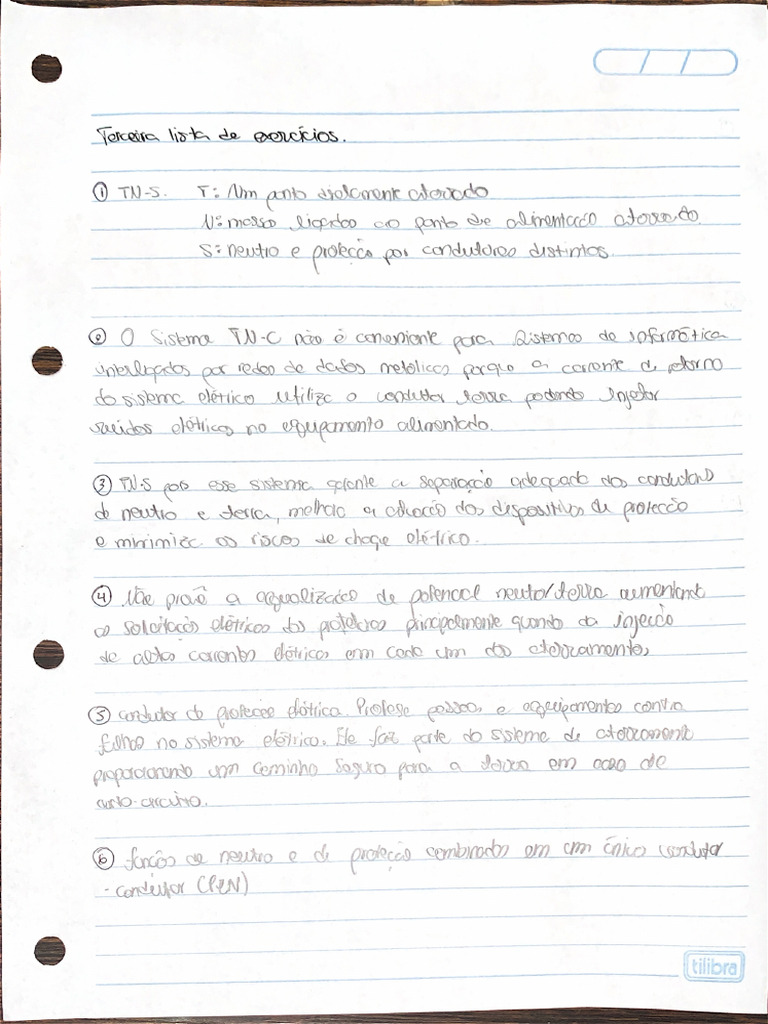 / /
Terceira lista de exercícios.
① TN-S. T: Um ponto diretamente aterrado
N: massas ligadas ao ponto de alimentação aterrado
S: neutro e proteção por condutores distintos.
② O Sistema TN-C não é conveniente para Sistemas de informática
interligados por redes de dados metálicos porque a corrente de retorno
do sistema elétrico utiliza o condutor terra podendo injetar
ruídos elétricos no equipamento alimentado.
③ TN-S pois esse sistema garante a separação adequada dos condutores
de neutro e terra, melhora a atuação dos dispositivos de proteção
e minimiza os riscos de choque elétrico.
④ Não provê a equalização de potencial neutro/terra aumentando
as solicitações elétricas dos protetores principalmente quando da injeção
de altas correntes elétricas em cada um dos aterramentos
⑤ condutor de proteção elétrica. Protege pessoas e equipamentos contra
falhas no sistema elétrico. Ele faz parte do sistema de aterramento
proporcionando um caminho seguro para a terra em caso de
curto-circuito.
⑥ funções de neutro e de proteção combinados em um único condutor
- condutor (PEN)
tilibra